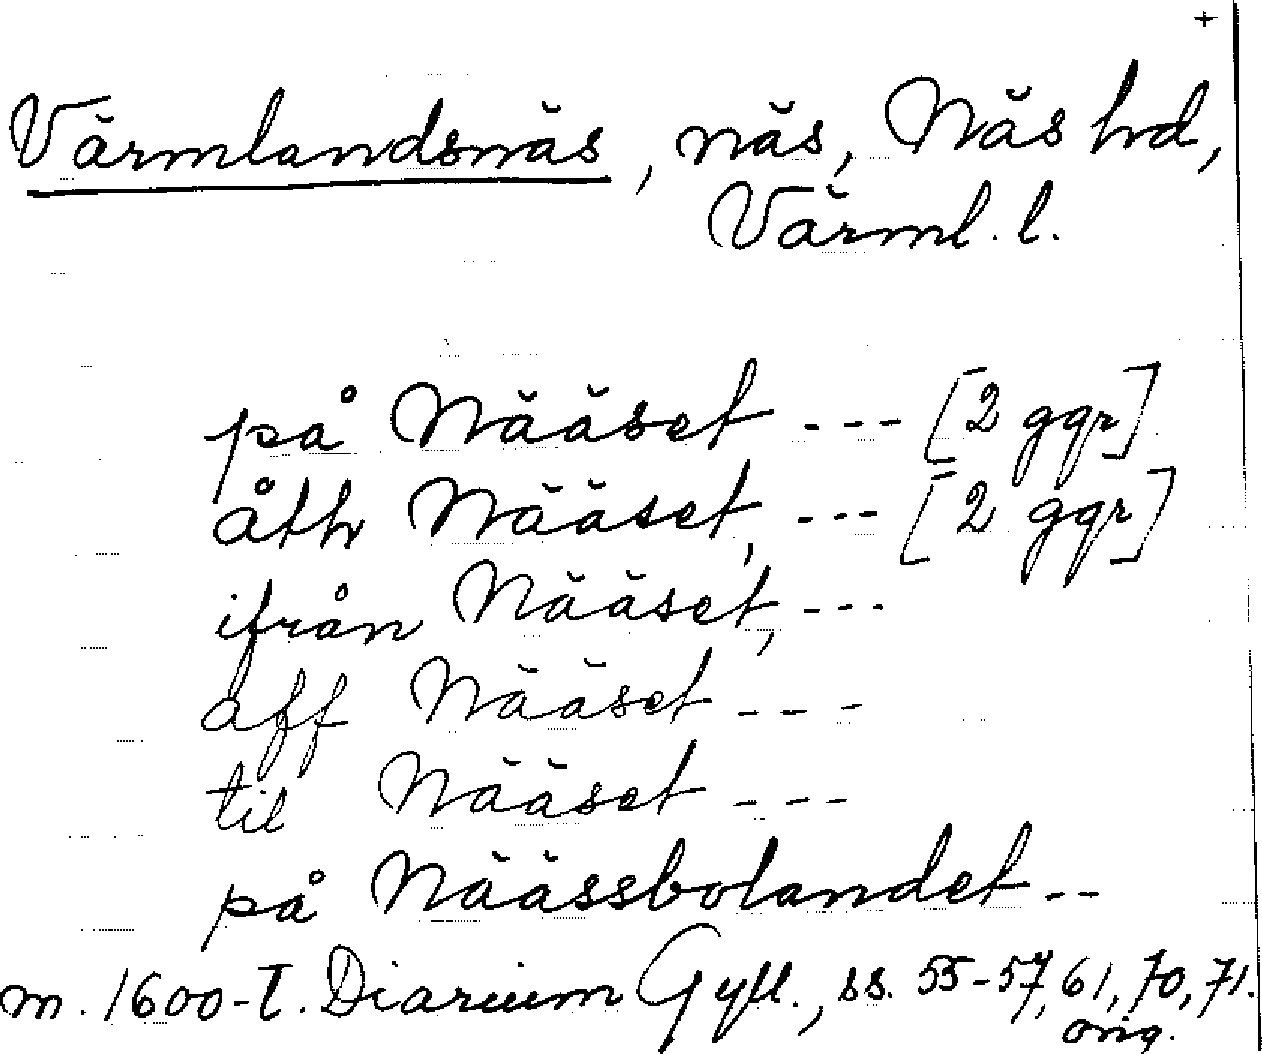 +
Värmlandsnäs, näs, Näs hd,
Värml. l.
på Nääset --- [2 ggr]
åth Nääset, --- [2 ggr]
ifrån Nääset, ---
aff Nääset ---
til Nääset ---
på Näässbolandet --
m. 1600-t. Diarium Gyll., ss. 55-57, 61, 70, 71.
orig.